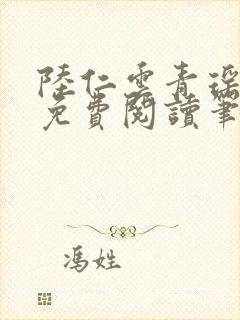 陸仁雲青瑶
免費閱讀筆
馮姓